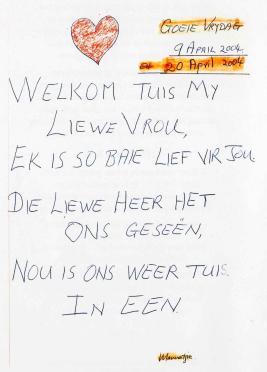 GOEIE VRYDAG
9 APRIL 2004
EN 20 April 2004
WELKOM TUIS MY
LIEWE VROU,
EK IS SO BAIE LIEF VIR JOU.
DIE LIEWE HEER HET
ONS GESEËN,
NOU IS ONS WEER TUIS
IN EEN